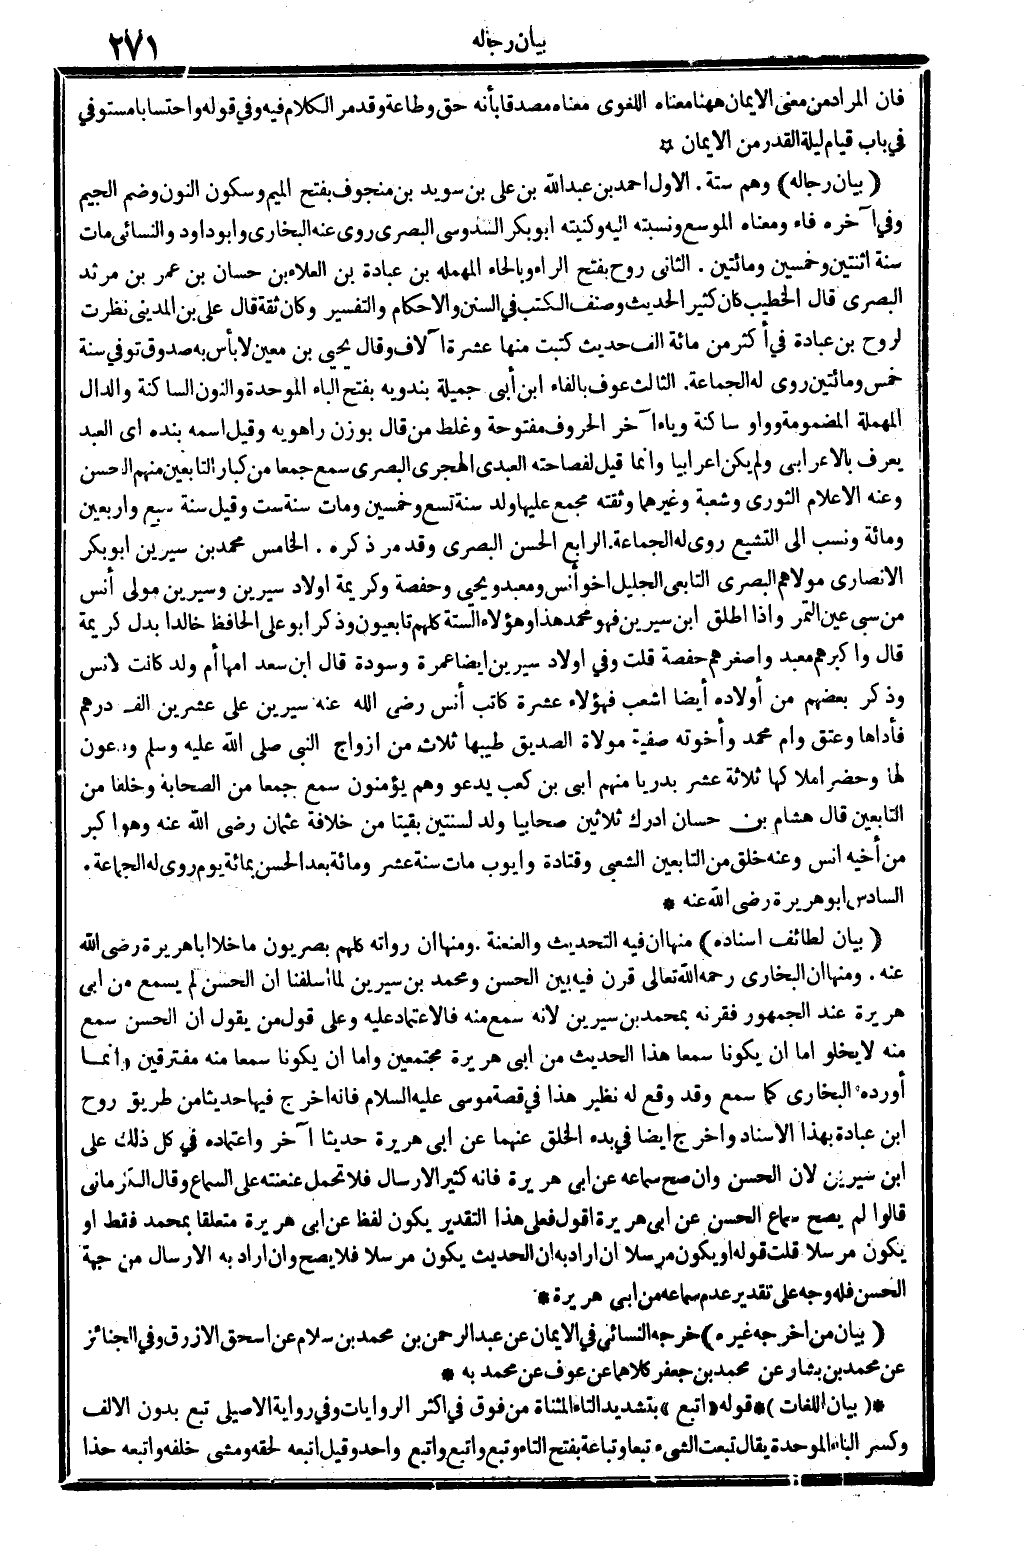 بيان رجاله
٢٧١
فان المراد من معنى الايمان ههنا معناه اللغوى معناه مصدقا بأنه حق وطاعة وقد مر الكلام فيه وفي قوله واحتسابا مستوفي
في باب قيام ليلة القدر من الايمان ☆
( بيان رجاله ) وهم ستة . الاول احمد بن عبد الله بن على بن سويد بن منجوف بفتح الميم وسكون النون وضم الجيم
وفي آخره فاء ومعناه الموسع ونسبته اليه وكنيته ابو بكر السدوسى البصرى روى عنه البخارى وابو داود والنسائى مات
سنة اثنتين وخمسين ومائتين . الثانى روح بفتح الراء وبالحاء المهمله بن عبادة بن العلاء بن حسان بن عمر بن مرثد
البصرى قال الخطيب كان كثير الحديث وصنف الكتب في السنن والاحكام والتفسير وكان ثقة قال على بن المدينى نظرت
لروح بن عبادة في أكثر من مائة الف حديث كتبت منها عشرة آلاف وقال يحيى بن معين لا بأس به صدوق توفي سنة
خمس ومائتين روى له الجماعة . الثالث عوف بالفاء ابن أبى جميلة بندويه بفتح الباء الموحدة والنون الساكنة والدال
المهملة المضمومة وواو ساكنة وياء آخر الحروف مفتوحة وغلط من قال بوزن راهويه وقيل اسمه بنده اى العبد
يعرف بالاعرابى ولم يكن اعرابيا وانما قيل لفصاحته العبدى الهجرى البصرى سمع جمعا من كبار التابعين منهم الحسن
وعنه الاعلام الثورى وشعبة وغيرهما وثقته مجمع عليها ولد سنة تسع وخمسين ومات سنة ست وقيل سنة سبع واربعين
ومائة ونسب الى التشيع روى له الجماعة . الرابع الحسن البصرى وقد مر ذكره . الخامس محمد بن سيرين ابو بكر
الانصارى مولاهم البصرى التابعى الجليل اخو أنس ومعبد ويحيى وحفصة وكريمة اولاد سيرين وسيرين مولى أنس
من سبى عين التمر واذا اطلق ابن سيرين فهو محمد هذا وهؤلاء الستة كلهم تابعيون وذكر ابو على الحافظ خالدا بدل كريمة
قال واكبرهم معبد واصغرهم حفصة قلت وفي اولاد سيرين ايضا عمرة وسودة قال ابن سعد امها أم ولد كانت لانس
وذكر بعضهم من أولاده أيضا اشعب فهؤلاء عشرة كاتب أنس رضى الله عنه سيرين على عشرين الف درهم
فأداها وعتق وام محمد وأخوته صفية مولاة الصديق طيبها ثلاث من ازواج النبى صلى الله عليه وسلم ودعون
لها وحضر املاكها ثلاثة عشر بدريا منهم ابى بن كعب يدعو وهم يؤمنون سمع جمعا من الصحابة وخلقا من
التابعين قال هشام بن حسان ادرك ثلاثين صحابيا ولد لسنتين بقيتا من خلافة عثمان رضى الله عنه وهو اكبر
من أخيه انس وعنه خلق من التابعين الشعبى وقتادة وايوب مات سنة عشر ومائة بعد الحسن بمائة يوم روى له الجماعة .
السادس ابو هريرة رضى الله عنه *
( بيان لطائف اسناده ) منها ان فيه التحديث والعنعنة . ومنها ان رواته كلهم بصريون ما خلا ابا هريرة رضى الله
عنه . ومنها ان البخارى رحمه الله تعالى قرن فيه بين الحسن ومحمد بن سيرين لما أسلفنا ان الحسن لم يسمع من ابى
هريرة عند الجمهور فقرنه بمحمد بن سيرين لانه سمع منه فالاعتماد عليه وعلى قول من يقول ان الحسن سمع
منه لا يخلو اما ان يكونا سمعا هذا الحديث من ابى هريرة مجتمعين واما ان يكونا سمعا منه مفترقين وانما
أورده البخارى كما سمع وقد وقع له نظير هذا في قصة موسى عليه السلام فانه اخرج فيها حديثا من طريق روح
ابن عبادة بهذا الاسناد واخرج ايضا في بدء الخلق عنهما عن ابى هريرة حديثا آخر واعتماده في كل ذلك على
ابن سيرين لان الحسن وان صح سماعه عن ابى هريرة فانه كثير الارسال فلا تحمل عنعنته على السماع وقال الكرمانى
قالوا لم يصح سماع الحسن عن ابى هريرة اقول فعلى هذا التقدير يكون لفظ عن ابى هريرة متعلقا بمحمد فقط او
يكون مرسلا قلت قوله او يكون مرسلا ان اراد به ان الحديث يكون مرسلا فلا يصح وان اراد به الارسال من جهة
الحسن فله وجه على تقدير عدم سماعه من ابى هريرة *
( بيان من اخرجه غيره ) خرجه النسائى في الايمان عن عبد الرحمن بن محمد بن سلام عن اسحق الازرق وفي الجنائز
عن محمد بن بشار عن محمد بن جعفر كلاهما عن عوف عن محمد به *
* ( بيان اللغات ) * قوله « اتبع » بتشديد التاء المثناة من فوق في اكثر الروايات وفي رواية الاصيلى تبع بدون الالف
وكسر الباء الموحدة يقال تبعت الشىء تبعا وتباعة بفتح التاء وتبع واتبع واتبع واحد وقيل اتبعه لحقه ومشى خلفه واتبعه حذا